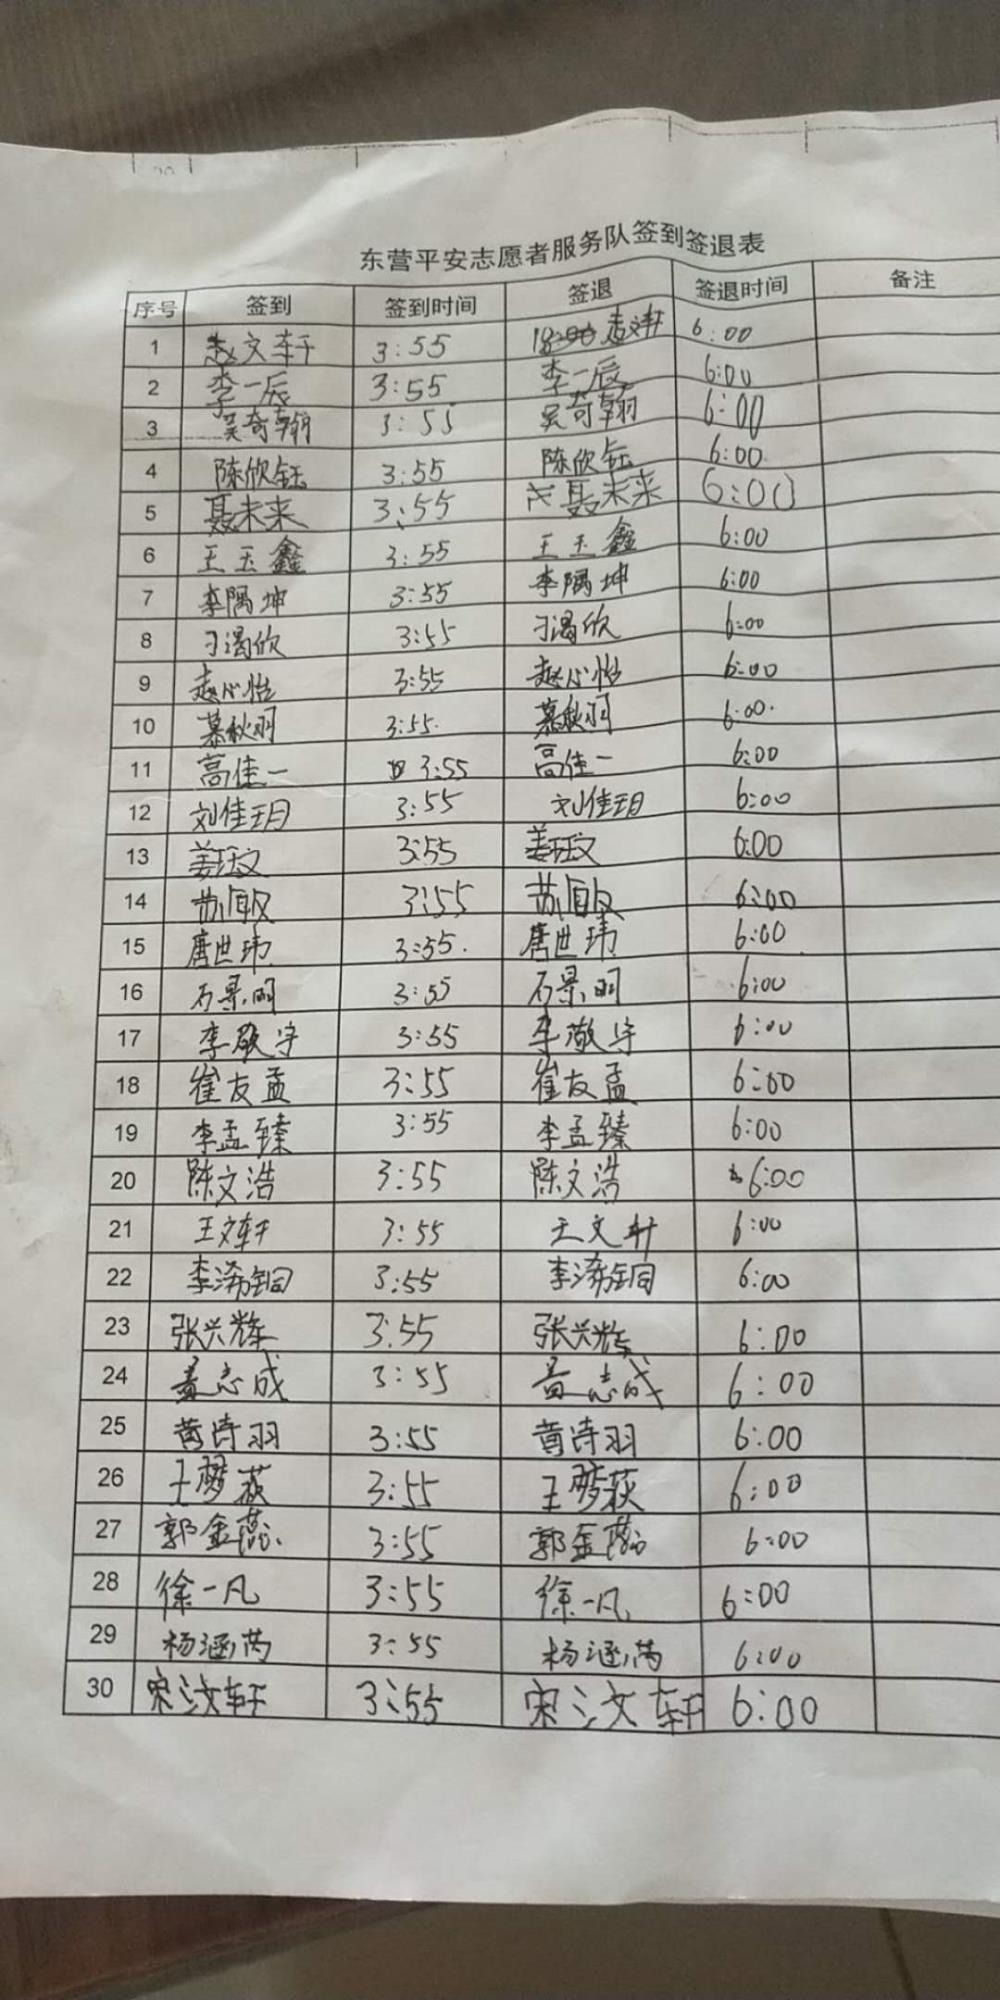 东营平安志愿者服务队签到签退表
序号 签到 签到时间 签退 签退时间 备注
1 赵文轩 3:55 赵文轩 6:00
2 李一辰 3:55 李一辰 6:00
3 吴奇翰 3:55 吴奇翰 6:00
4 陈欣钰 3:55 陈欣钰 6:00
5 聂未来 3:55 聂未来 6:00
6 王玉鑫 3:55 王玉鑫 6:00
7 李隅坤 3:55 李隅坤 6:00
8 3:55 6:00
9 赵心怡 3:55 赵心怡 6:00
10 慕秋羽 3:55. 慕秋羽 6:00.
11 高佳一 3:55 高佳一 6:00
12 刘佳玥 3:55 刘佳玥 6:00
13 姜珏文 3:55 姜珏文 6:00
14 3:55 6:00
15 唐世玮 3:55. 唐世玮 6:00
16 石景明 3:55 石景明 6:00
17 李敬宇 3:55 李敬宇 6:00
18 崔友孟 3:55 崔友孟 6:00
19 李孟臻 3:55 李孟臻 6:00
20 陈文浩 3:55 陈文浩 6:00
21 王文轩 3:55 王文轩 6:00
22 李浠铜 3:55 李浠铜 6:00
23 张兴辉 3:55 张兴辉 6:00
24 盖志成 3:55 盖志成 6:00
25 黄诗羽 3:55 黄诗羽 6:00
26 王梦荻 3:55 王梦荻 6:00
27 郭金蕊 3:55 郭金蕊 6:00
28 徐一凡 3:55 徐一凡 6:00
29 杨涵芮 3:55 杨涵芮 6:00
30 宋汶轩 3:55 宋汶轩 6:00